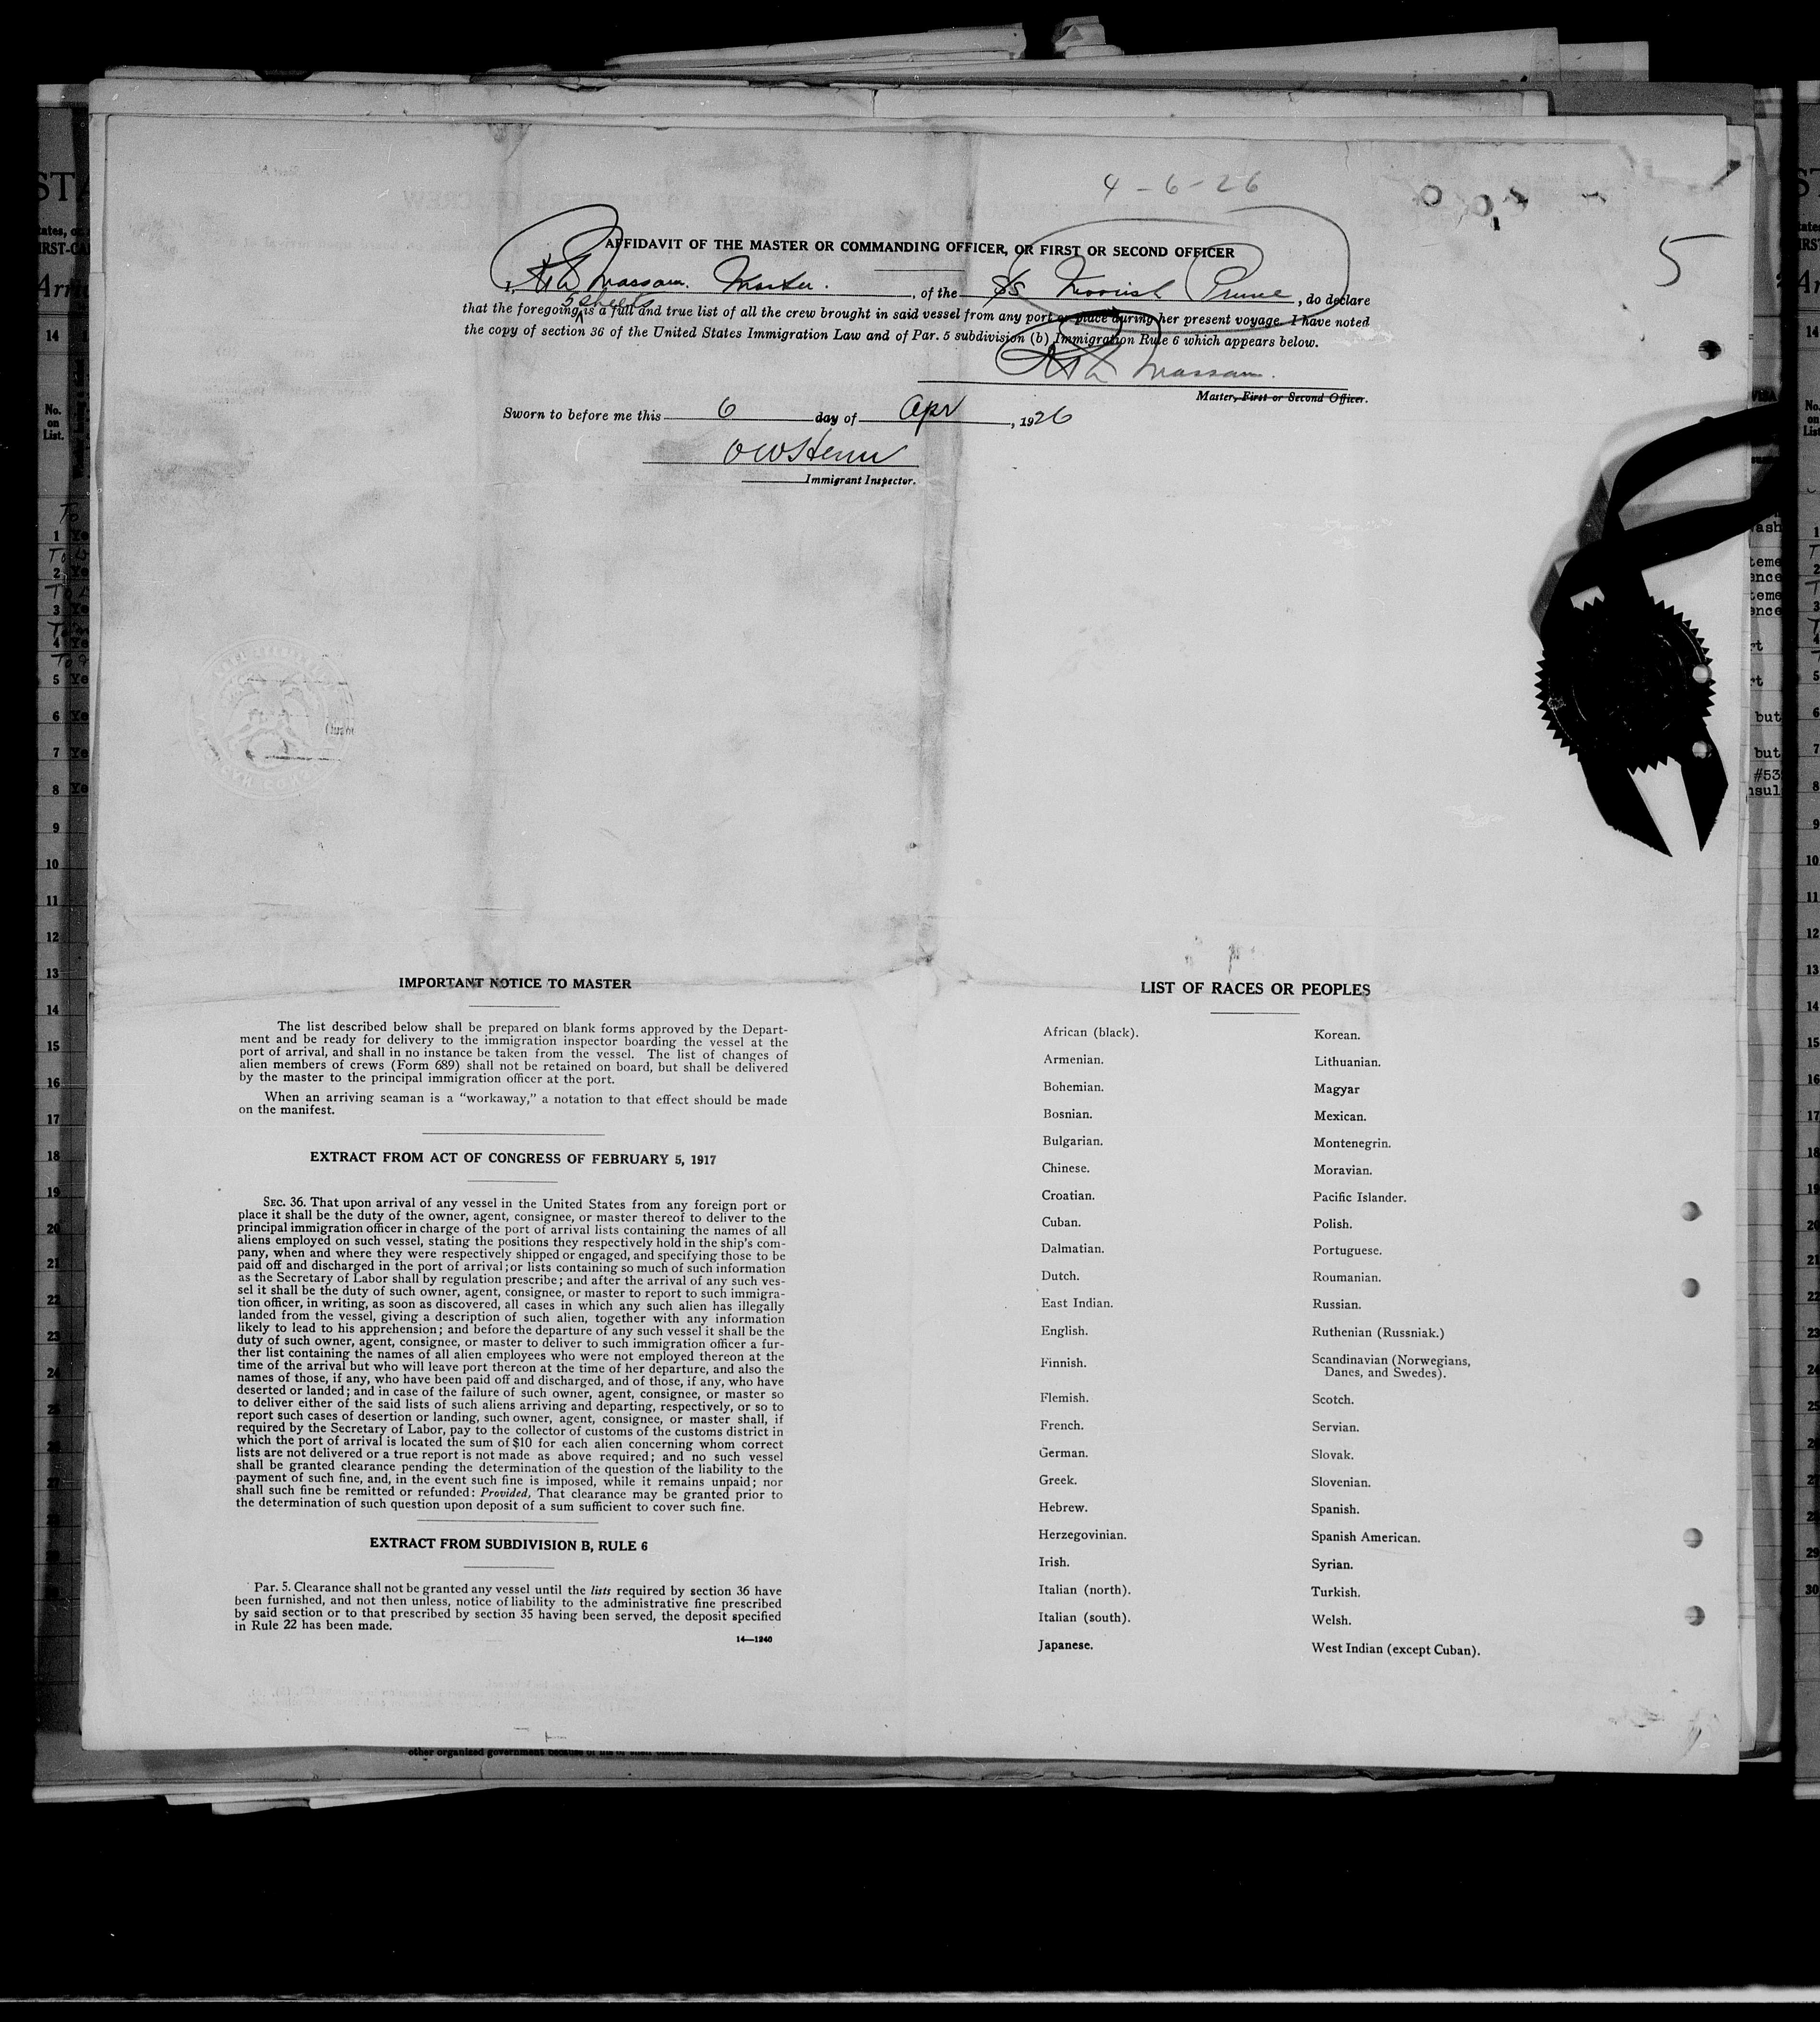 4-6-26
5
AFFIDAVIT OF THE MASTER OR COMMANDING OFFICER, OR FIRST OR SECOND OFFICER
I, Massam. Master. , of the SS Moorish Prince , do declare
5 sheets
that the foregoing is a full and true list of all the crew brought in said vessel from any port or place during her present voyage. I have noted
the copy of section 36 of the United States Immigration Law and of Par. 5 subdivision (b) Immigration Rule 6 which appears below.
Massam.
Master, First or Second Officer.
Sworn to before me this 6 day of Apr , 1926
Immigrant Inspector.
IMPORTANT NOTICE TO MASTER
The list described below shall be prepared on blank forms approved by the Depart-
ment and be ready for delivery to the immigration inspector boarding the vessel at the
port of arrival, and shall in no instance be taken from the vessel. The list of changes of
alien members of crews (Form 689) shall not be retained on board, but shall be delivered
by the master to the principal immigration officer at the port.
When an arriving seaman is a "workaway," a notation to that effect should be made
on the manifest.
EXTRACT FROM ACT OF CONGRESS OF FEBRUARY 5, 1917
SEC. 36. That upon arrival of any vessel in the United States from any foreign port or
place it shall be the duty of the owner, agent, consignee, or master thereof to deliver to the
principal immigration officer in charge of the port of arrival lists containing the names of all
aliens employed on such vessel, stating the positions they respectively hold in the ship's com-
pany, when and where they were respectively shipped or engaged, and specifying those to be
paid off and discharged in the port of arrival; or lists containing so much of such information
as the Secretary of Labor shall by regulation prescribe; and after the arrival of any such ves-
sel it shall be the duty of such owner, agent, consignee, or master to report to such immigra-
tion officer, in writing, as soon as discovered, all cases in which any such alien has illegally
landed from the vessel, giving a description of such alien, together with any information
likely to lead to his apprehension; and before the departure of any such vessel it shall be the
duty of such owner, agent, consignee, or master to deliver to such immigration officer a fur-
ther list containing the names of all alien employees who were not employed thereon at the
time of the arrival but who will leave port thereon at the time of her departure, and also the
names of those, if any, who have been paid off and discharged, and of those, if any, who have
deserted or landed; and in case of the failure of such owner, agent, consignee, or master so
to deliver either of the said lists of such aliens arriving and departing, respectively, or so to
report such cases of desertion or landing, such owner, agent, consignee, or master shall, if
required by the Secretary of Labor, pay to the collector of customs of the customs district in
which the port of arrival is located the sum of $10 for each alien concerning whom correct
lists are not delivered or a true report is not made as above required; and no such vessel
shall be granted clearance pending the determination of the question of the liability to the
payment of such fine, and, in the event such fine is imposed, while it remains unpaid; nor
shall such fine be remitted or refunded: Provided, That clearance may be granted prior to
the determination of such question upon deposit of a sum sufficient to cover such fine.
EXTRACT FROM SUBDIVISION B, RULE 6
Par. 5. Clearance shall not be granted any vessel until the lists required by section 36 have
been furnished, and not then unless, notice of liability to the administrative fine prescribed
by said section or to that prescribed by section 35 having been served, the deposit specified
in Rule 22 has been made.
14—1240
LIST OF RACES OR PEOPLES
African (black).
Armenian.
Bohemian.
Bosnian.
Bulgarian.
Chinese.
Croatian.
Cuban.
Dalmatian.
Dutch.
East Indian.
English.
Finnish.
Flemish.
French.
German.
Greek.
Hebrew.
Herzegovinian.
Irish.
Italian (north).
Italian (south).
Japanese.
Korean.
Lithuanian.
Magyar
Mexican.
Montenegrin.
Moravian.
Pacific Islander.
Polish.
Portuguese.
Roumanian.
Russian.
Ruthenian (Russniak.)
Scandinavian (Norwegians,
Danes, and Swedes).
Scotch.
Servian.
Slovak.
Slovenian.
Spanish.
Spanish American.
Syrian.
Turkish.
Welsh.
West Indian (except Cuban).